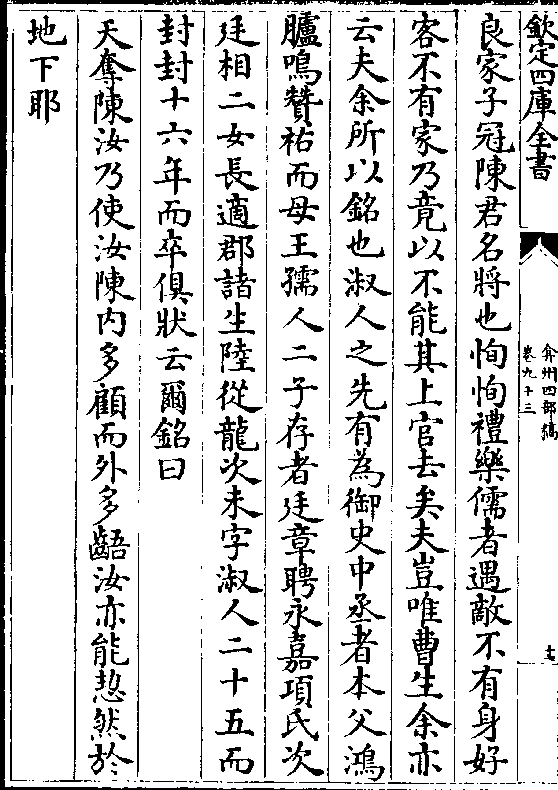 欽定四庫全書
弇州四部稿
卷九十三
十七
良家子冠陳君名將也恂恂禮樂儒者遇敵不有身好
客不有家乃竟以不能其上官去矣夫豈唯曹生余亦
云夫余所以銘也淑人之先有為御史中丞者本父鴻
臚鳴贊祐而母王孺人二子存者廷章聘永嘉項氏次
廷相二女長適郡諸生陸從龍次未字淑人二十五而
封封十六年而卒俱狀云爾銘曰
天奪陳汝乃使汝陳内多顧而外多齬汝亦能恝然於
地下耶